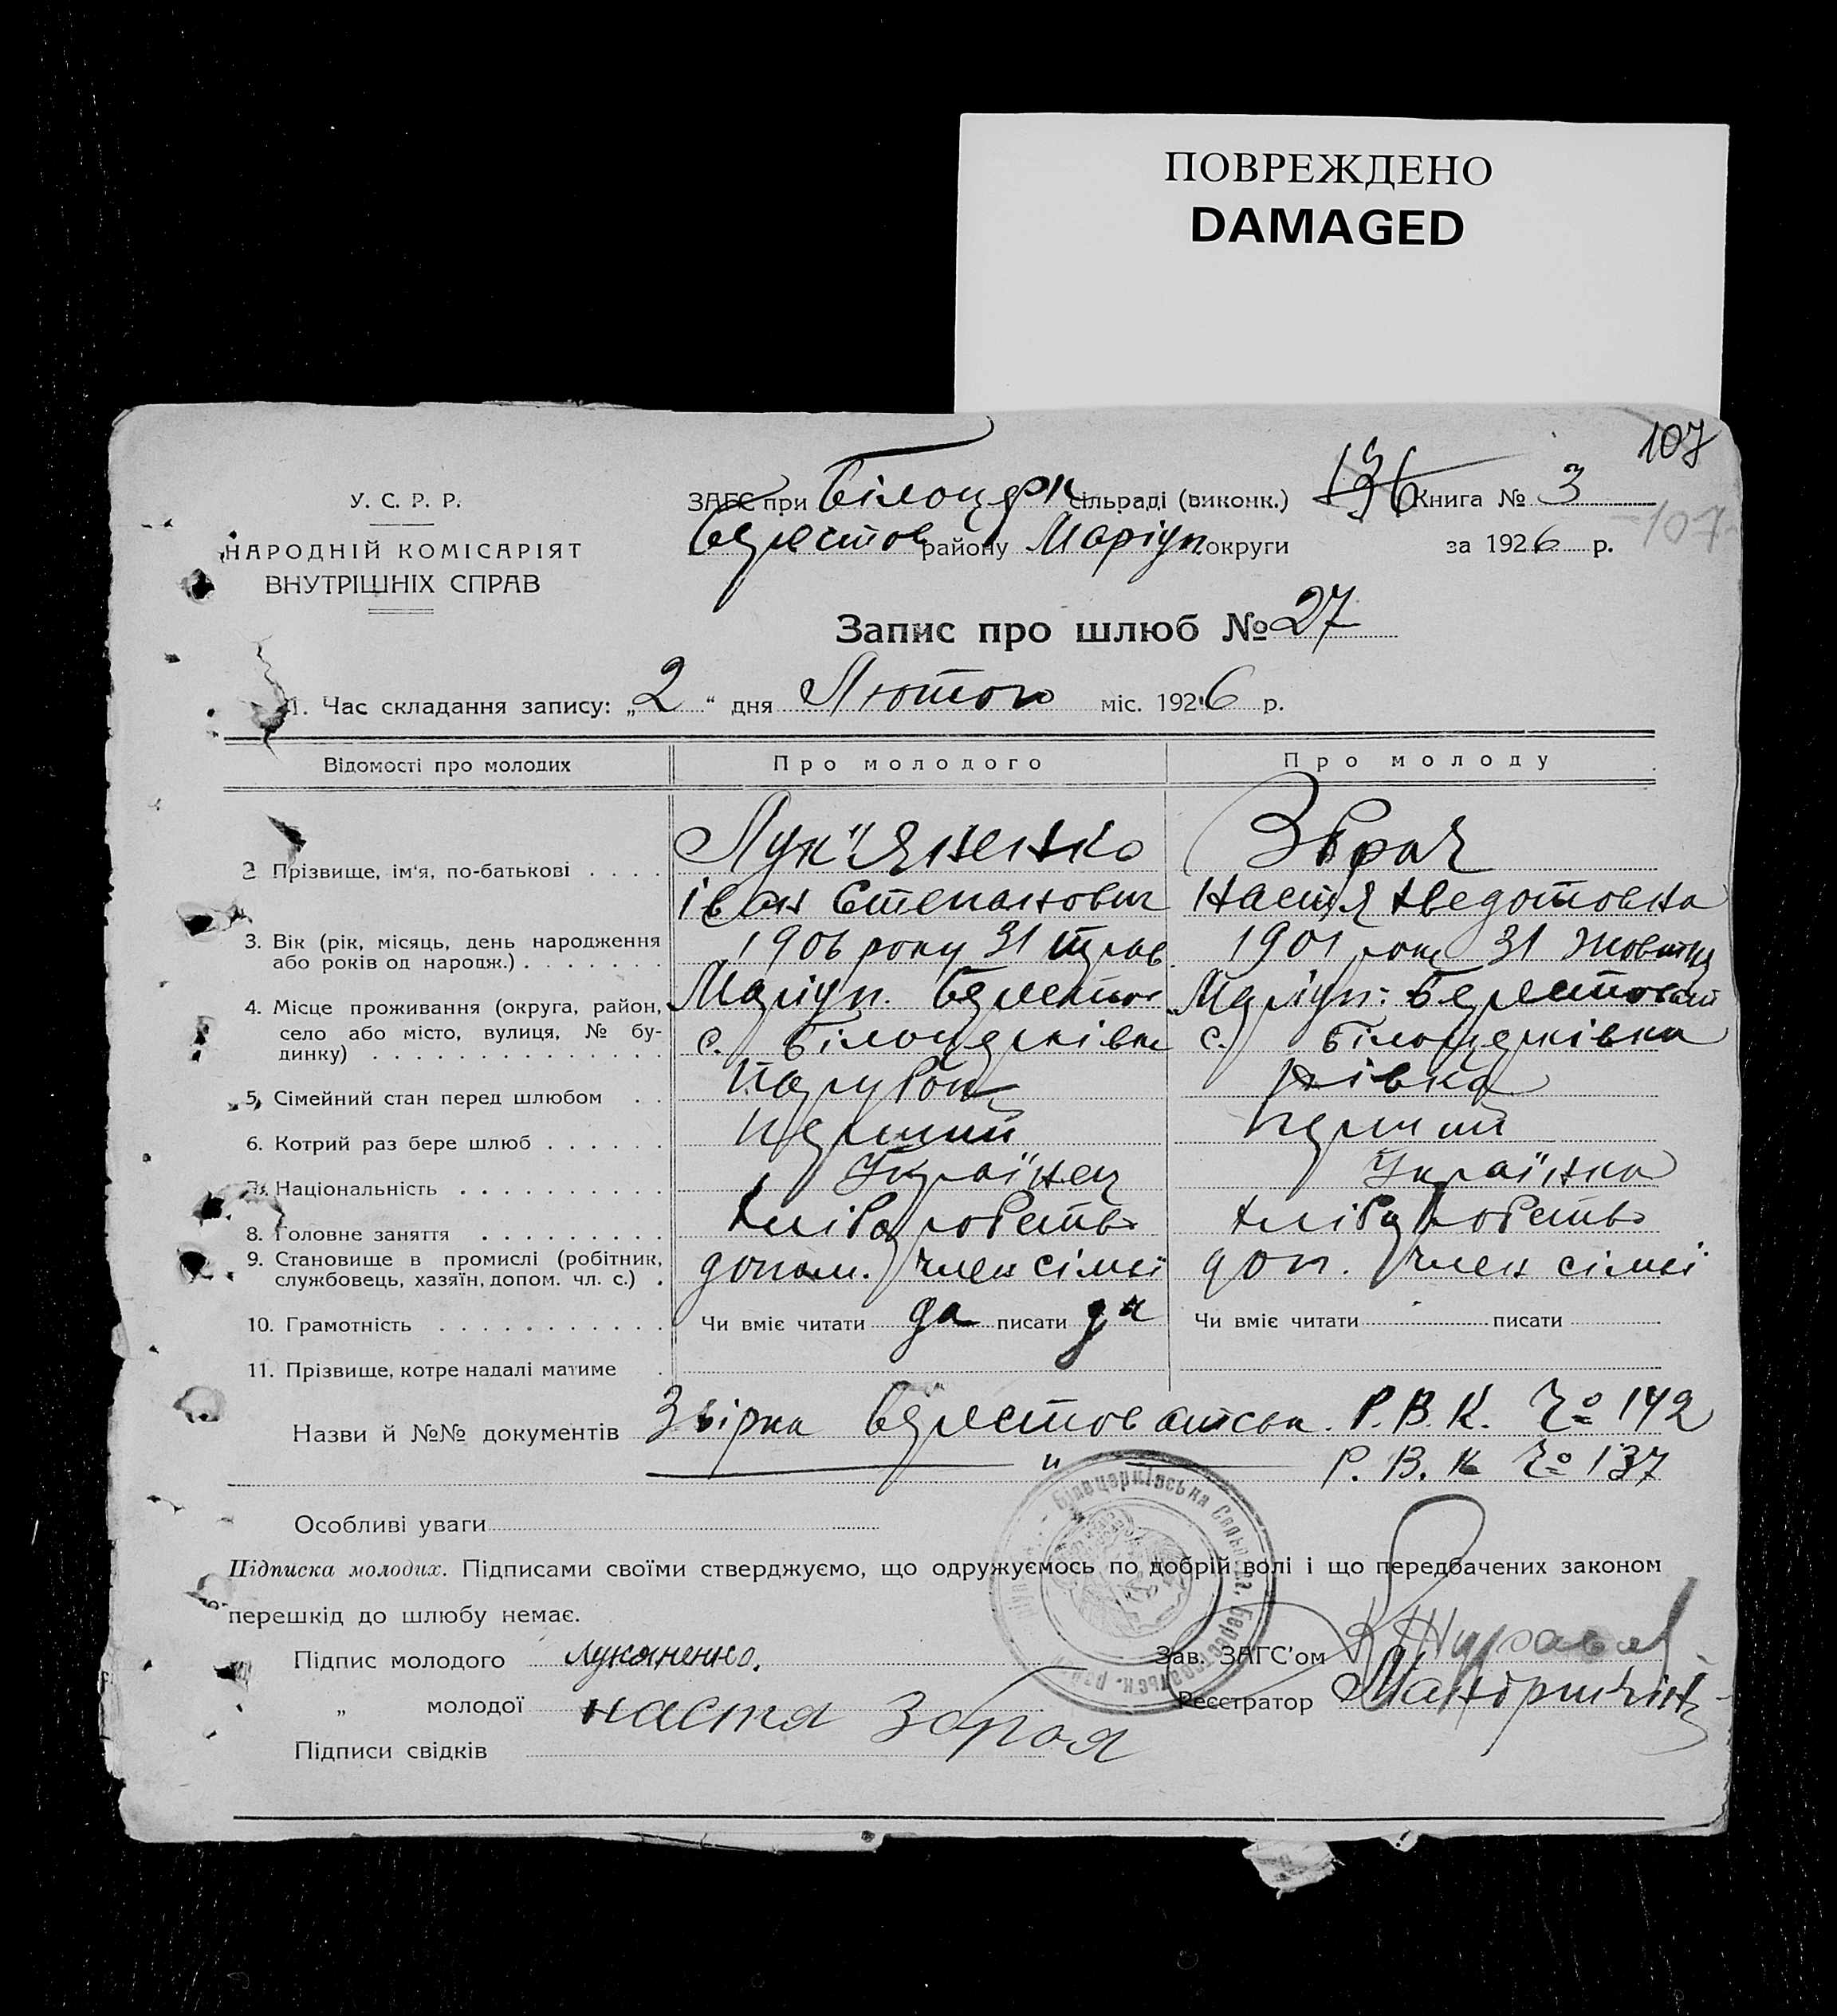 ПОВРЕЖДЕНО
DAMAGED
107
У. С. Р. Р.
НАРОДНІЙ КОМІСАРІЯТ
ВНУТРІШНІХ СПРАВ
ЗАГС при Білоцерк сільраді (виконк.) 136 Книга № 3
Берестов району Маріуп округи за 1926 р. -107-
Запис про шлюб № 27
1. Час складання запису: „2“ дня Лютого міс. 1926 р.
Відомості про молодих Про молодого Про молоду
2 Прізвище, ім'я, по-батькові Лук'яненко Збрая
Іван Степанович Настя Хведотовна
3. Вік (рік, місяць, день народження 1906 року 31 трав. 1901 року 31 Жовтня
або років од народж.)
4. Місце проживання (округа, район, Маріуп. Берестов Маріуп: Берестовский
село або місто, вулиця, № бу- с. Білоцерківка с. Білоцерківка
динку)
5. Сімейний стан перед шлюбом Парубок дівка
6. Котрий раз бере шлюб перший перший
7. Національність Українец Українка
8. Головне заняття хліборобство хліборобство
9. Становище в промислі (робітник, допом. член сімьї доп. член сімьї
службовець, хазяїн, допом. чл. с.)
10. Грамотність Чи вміє читати да писати да Чи вміє читати писати
11. Прізвище, котре надалі матиме
Назви й №№ документів Звірка Берестов Р.В.К. № 142
" Р.В.К № 137
Особливі уваги
Підписка молодих. Підписами своїми стверджуємо, що одружуємось по добрій волі і що передбачених законом
перешкід до шлюбу немає.
Підпис молодого Лукяненко. Зав. ЗАГС'ом
„ молодої настя Збрая Реєстратор
Підписи свідків
Білоцерківська